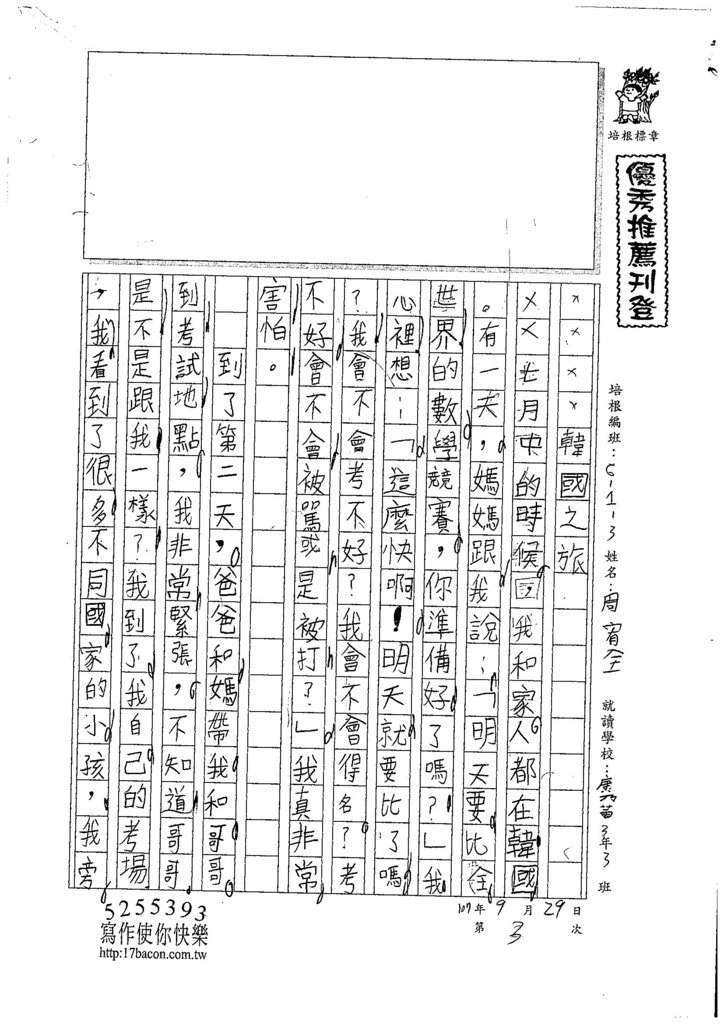 培根標章
優秀推薦刊登
培根編班：
姓名：周
就讀學校：
3年3班
107年9月29日
第3次
××××韓國之旅
××七月中的時候，我和家人都在韓國
。有一天，媽媽跟我說：「明天要比全
世界的數學競賽，你準備好了嗎？」我
心裡想：「這麼快啊！明天就要比了嗎
？我會不會考不好？我會不會得名？考
不好會不會被罵或是被打？」我真非常
害怕。
到了第二天，爸爸和媽帶我和哥哥
到考試地點，我非常緊張，不知道哥哥
是不是跟我一樣？我到了我自己的考場
，我看到了很多不同國家的小孩，我旁
5255393
寫作使你快樂
http:17bacon.com.tw